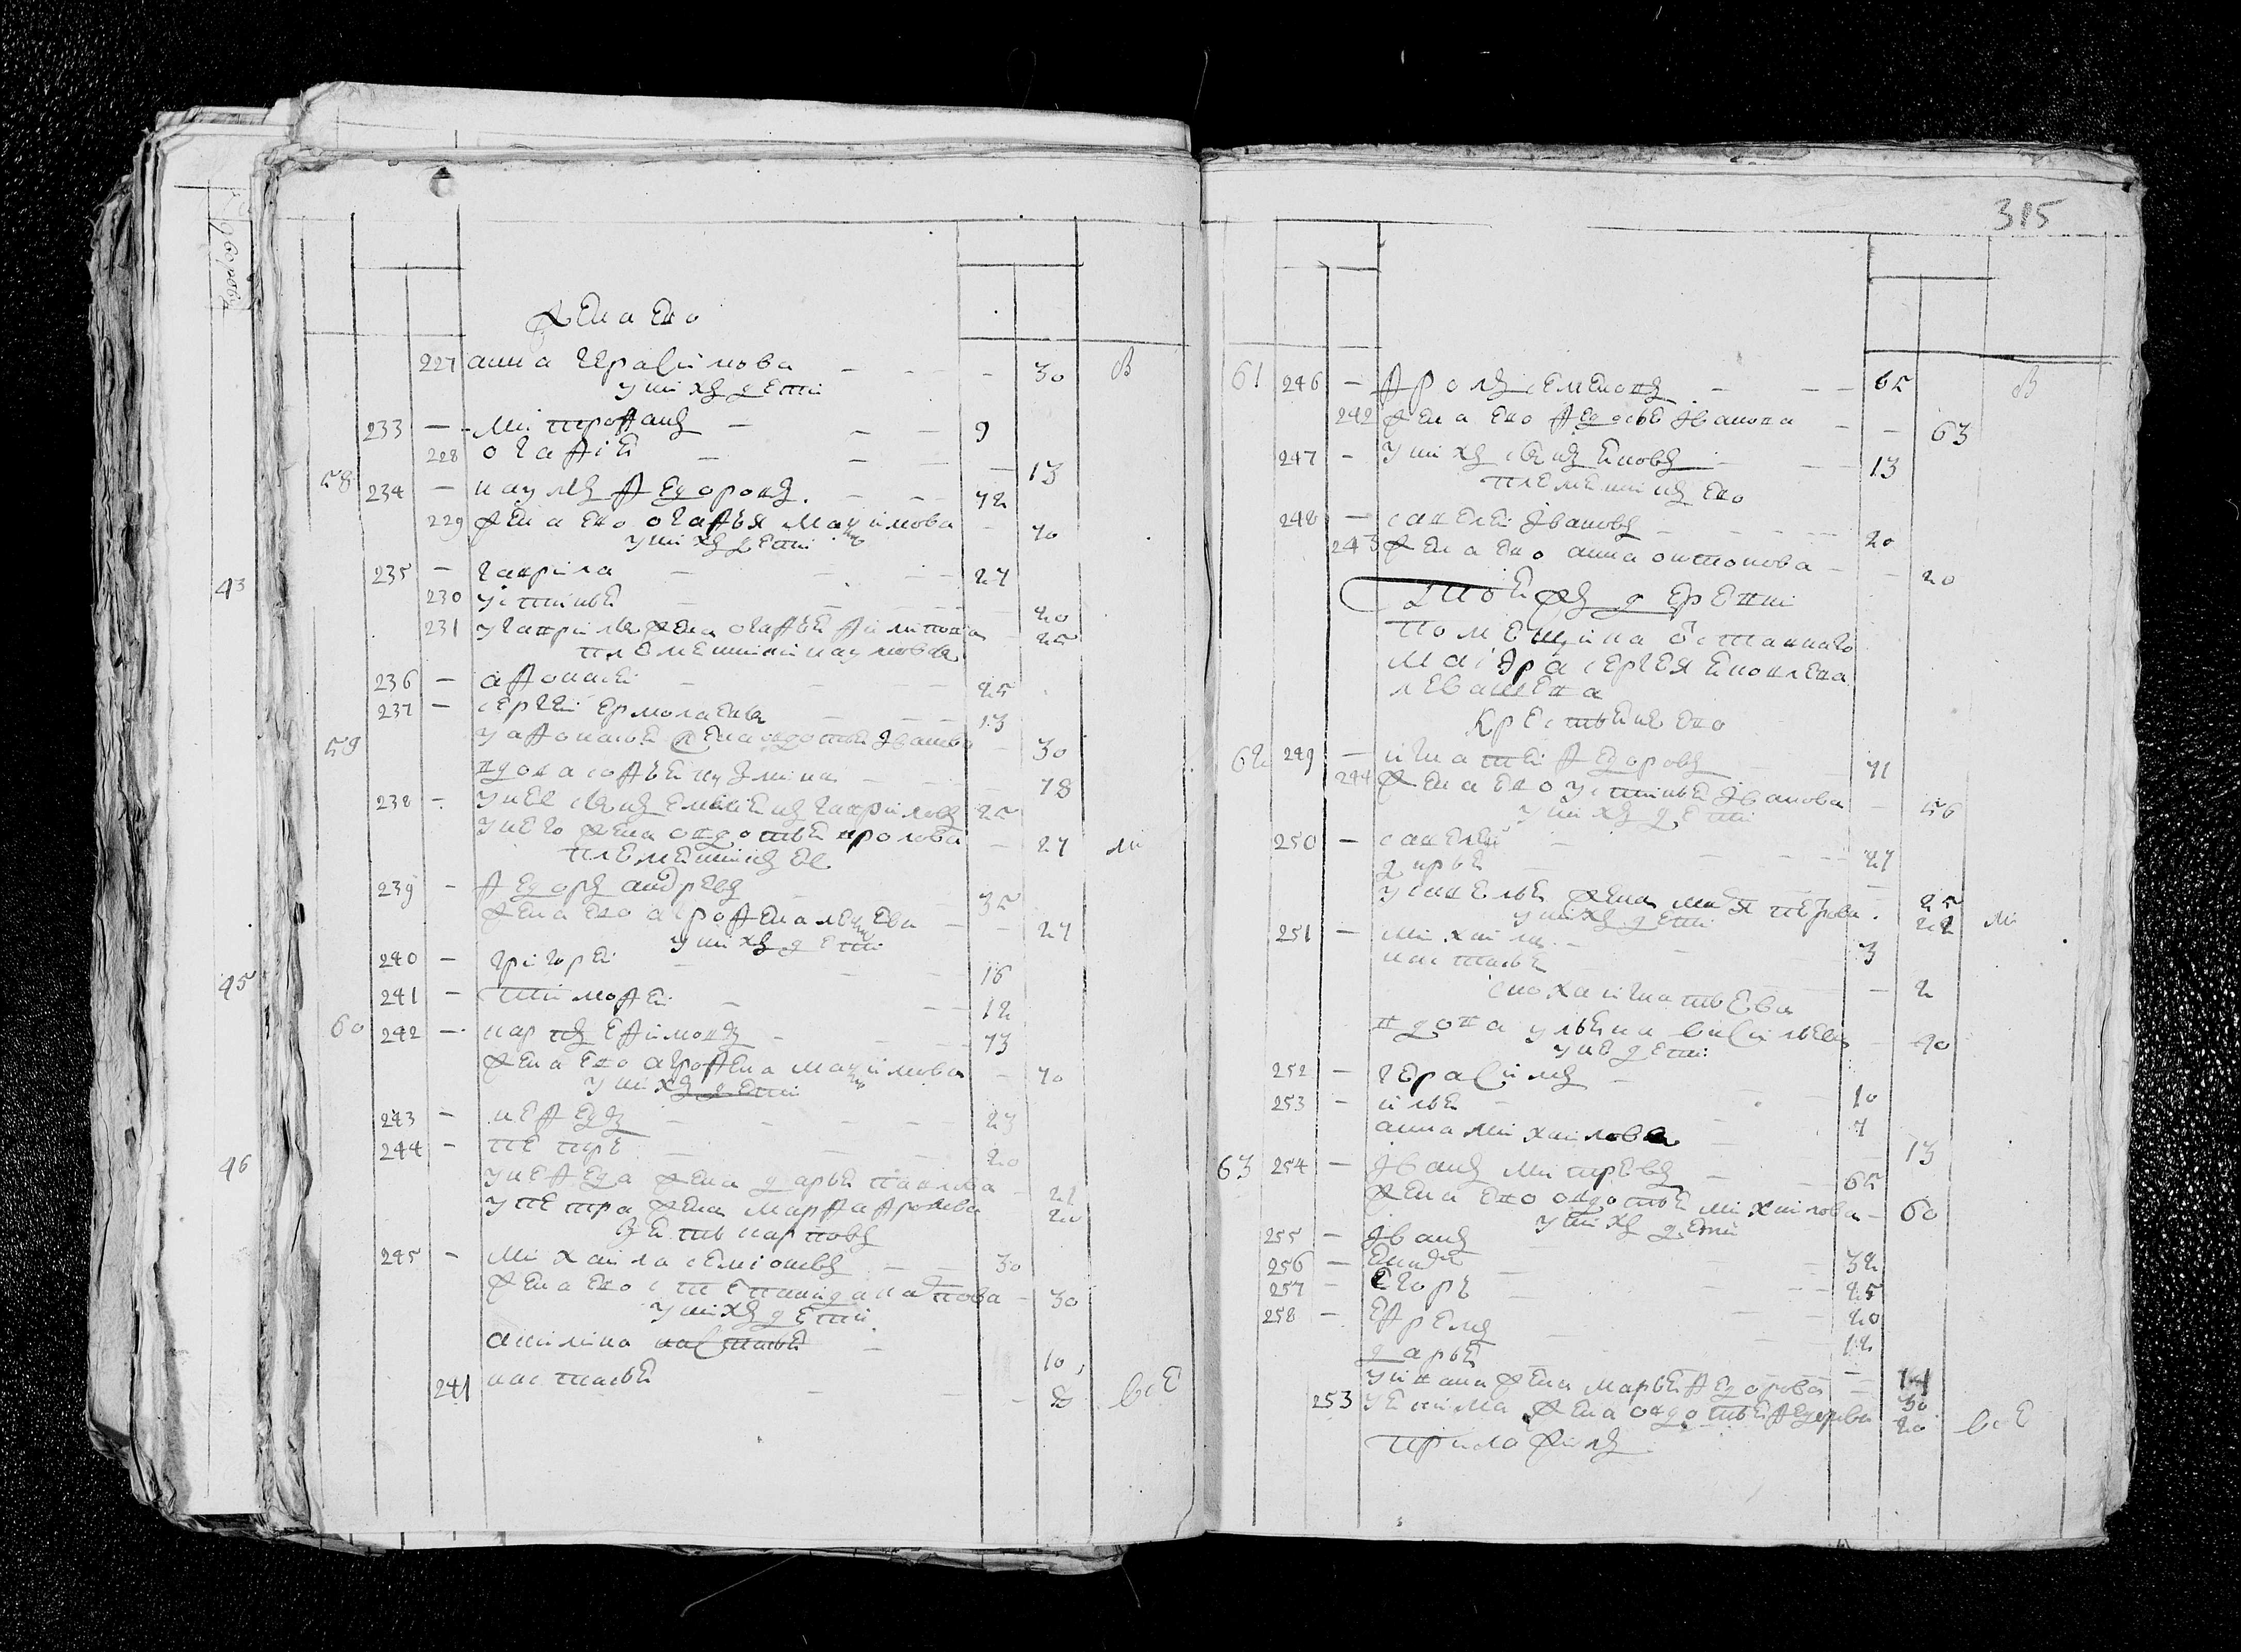 жена ево
227 анна герасимова — 30 В
у них дети
233 — митрофанъ — 9
228 огафия — 13
58 234 — наумъ федоровъ — 72
229 жена ево огафья максимова — 70
у них дети
235 — гаврила — 27
230 устинья — 20
231 у гаврилы жена огафья филипова — 25
племянники наумовы
236 — афонасей — 25
237 — сергей ермолаевъ — 13
59 у афонасья жена овдотья Иванова — 30
вдова софья кузмина — 78
238 — у нее сынъ емельянъ гавриловъ — 25
у него жена овдотья фролова — 27 ми
племянникъ ее
239 — федоръ андревъ — 35
жена ево агрофена — 27
у них дети
240 — григорей — 16
241 — тимофей — 12
60 242 — карпъ ефимовъ — 73
жена ево агрофена максимова — 70
у них дети
243 — нефедъ — 23
244 — петръ — 20
у нефеда жена дарья павлова — 22
у петра жена марфа фролова — 20
зять карповъ
245 — михаила семионовъ — 30
жена ево степанида — 30
у них дети
акилина — 10
241 настасья — 8 все
43
45
46
315
61 246 — фролъ семеновъ — 65 В
242 жена ево федосья Иванова — 63
247 — у них сынъ яковъ — 13
племянникъ ево
248 — савелей Ивановъ — 20
243 жена ево анна онтонова — 20
Той жъ деревни
помещика отставнаго
маиора сергея яковлева
левашева
крестьяне ево
62 249 — игнатей федоровъ — 71
244 жена ево устинья Иванова — 56
у них дети
250 — савелей — 27
дарья — 25
у савелья жена — 22 ми
у них дети
251 — михаила — 3
настасья — 2
сноха игнатьева
вдова ульяна васильева — 40
у не дети
252 — герасимъ — 10
253 — илья — 7
анна михайлова — 13
63 254 — Иванъ митревъ — 65
жена ево овдотья михайлова — 60
у них дети
255 — Иванъ — 32
256 — — 25
257 — егоръ — 20
258 — ефремъ — 12
дарья — 14
у ивана жена марья федорова — 30
253 у екима жена овдотья федорова — 20 все